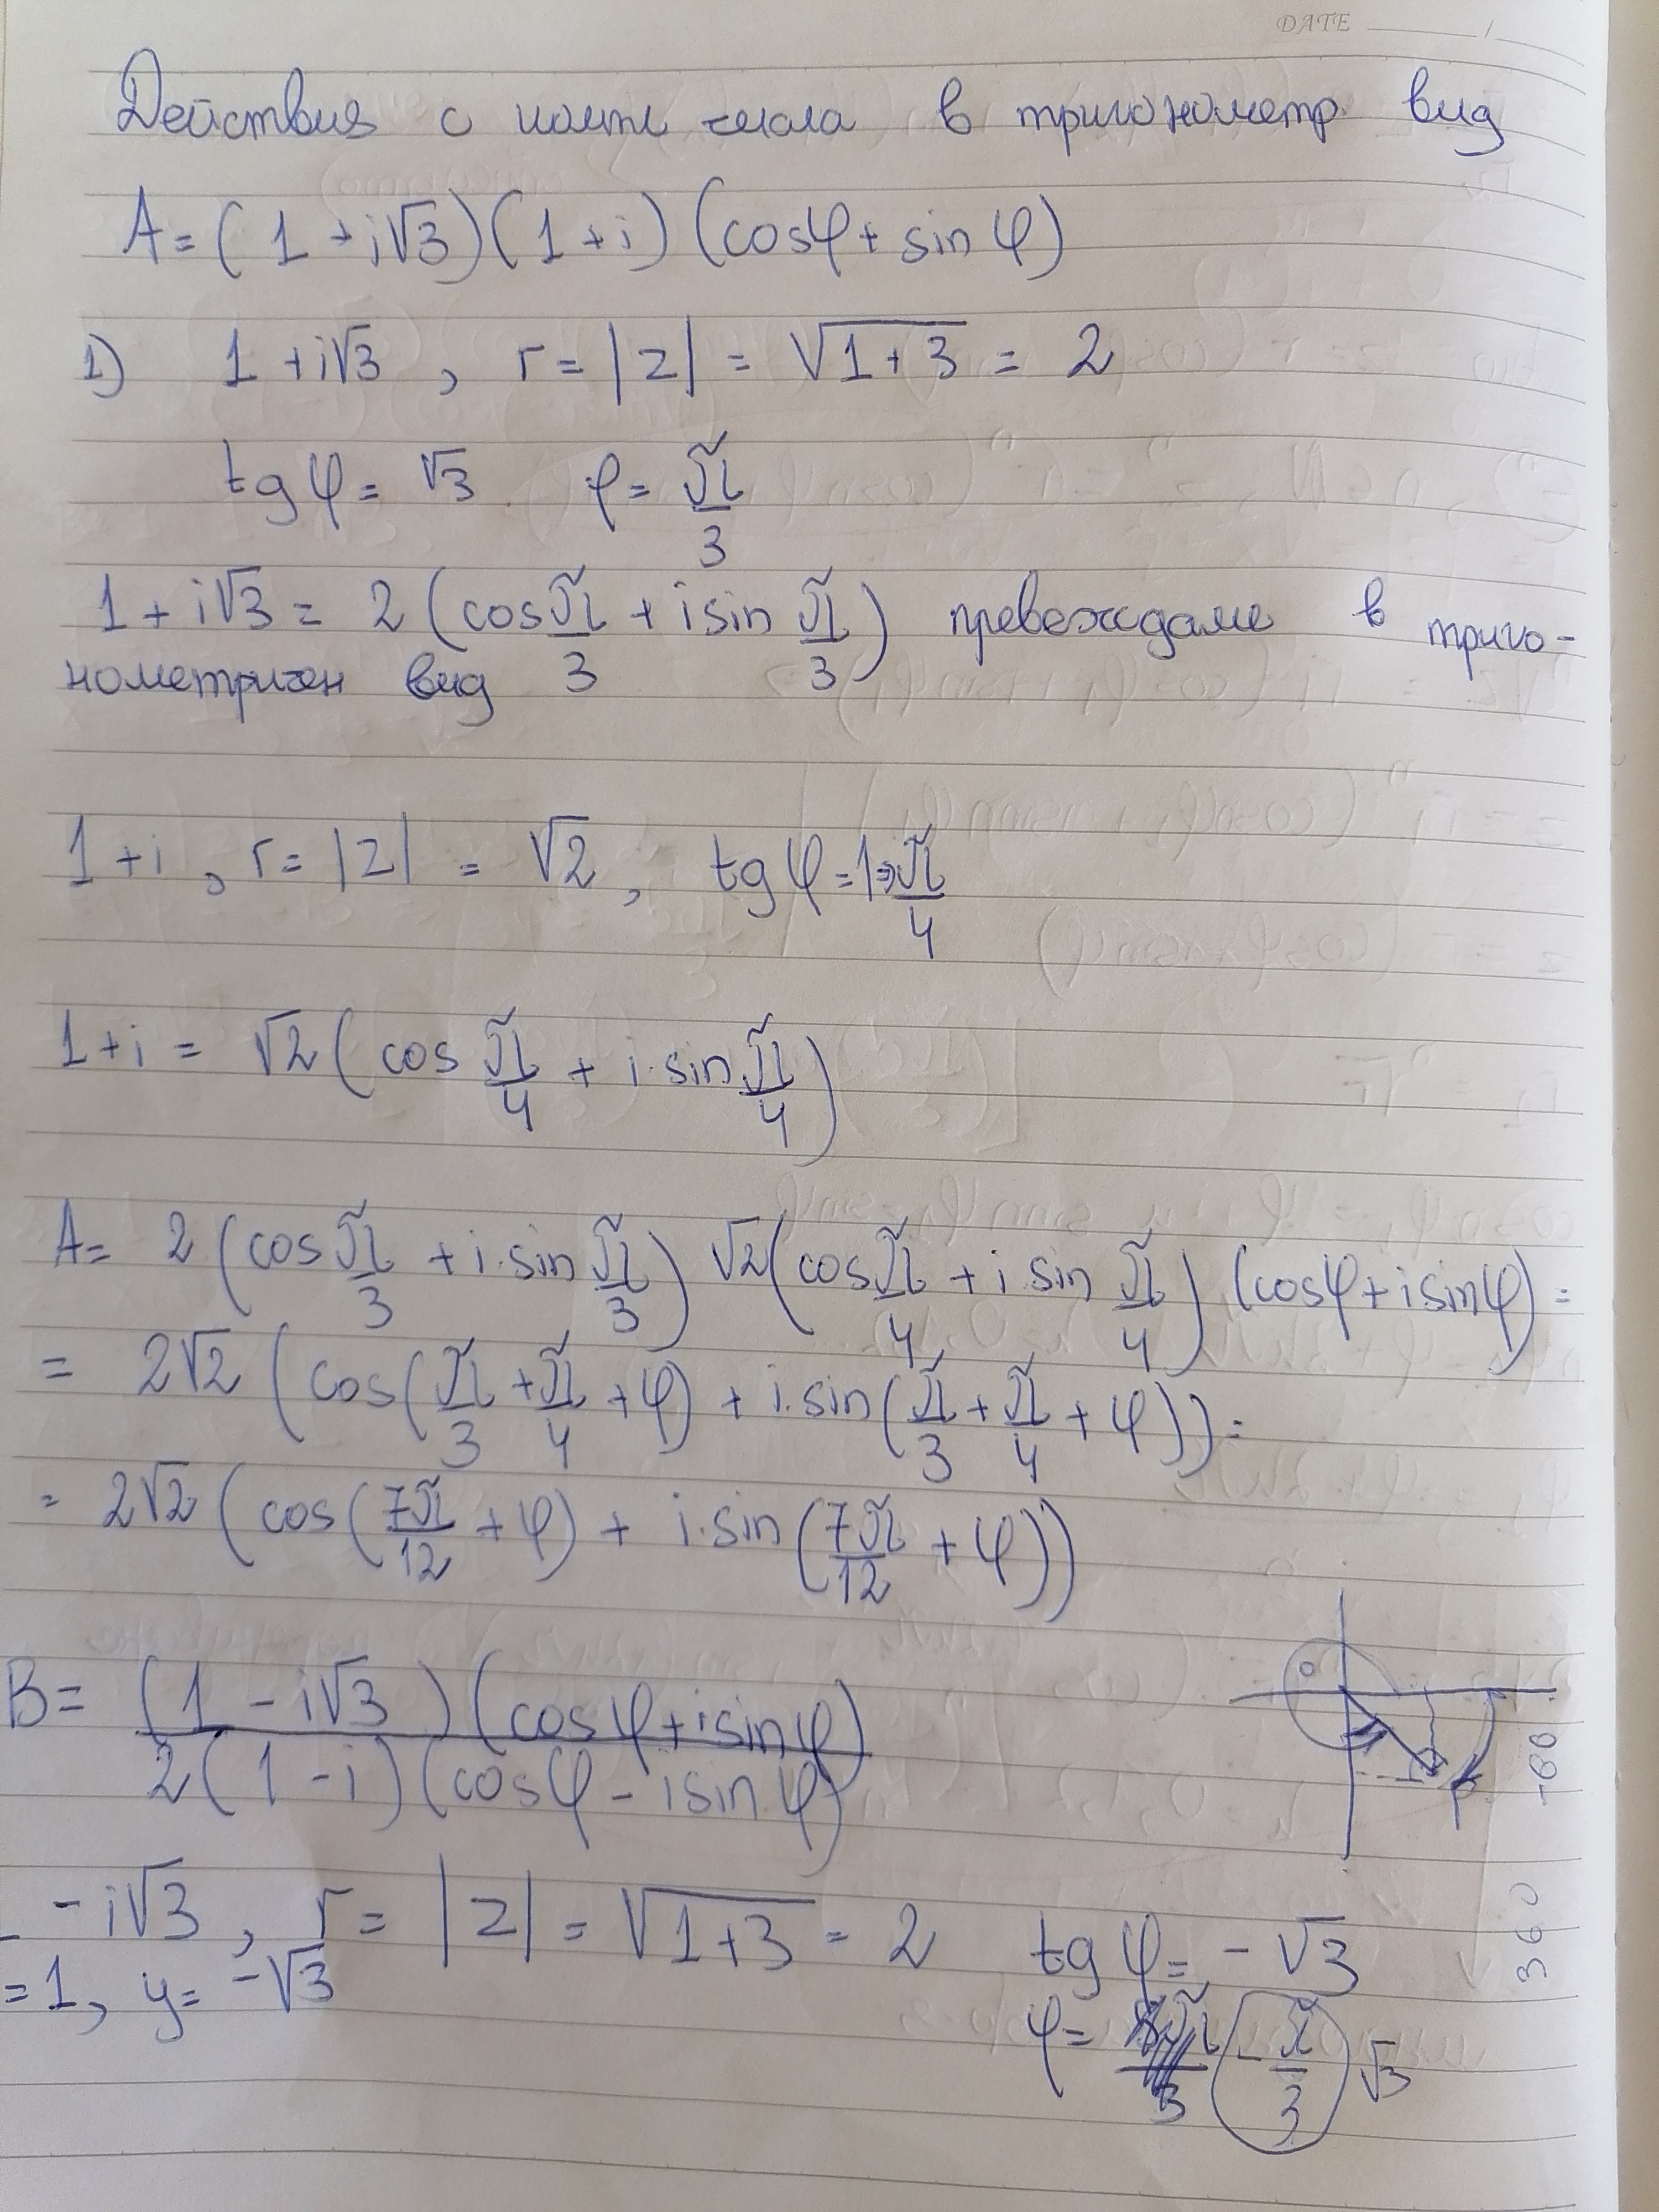 DATE
Действия с компл числа в тригонометр. вид
A = (1 + i√3)(1 + i)(cosφ + sin φ)
1) 1 + i√3 , r = |z| = √(1+3) = 2
tg φ = √3 φ = π/3
1 + i√3 = 2 (cos π/3 + i sin π/3) превеждаме в триго-
нометричен вид
1 + i , r = |z| = √2 , tg φ = 1 => π/4
1 + i = √2 (cos π/4 + i. sin π/4)
A = 2 (cos π/3 + i. sin π/3) √2 (cos π/4 + i sin π/4) (cosφ + i sinφ) =
= 2√2 (cos(π/3 + π/4 + φ) + i. sin(π/3 + π/4 + φ)) =
= 2√2 (cos(7π/12 + φ) + i. sin(7π/12 + φ))
B = (1 - i√3)(cosφ + i sinφ) / 2(1 - i)(cosφ - i sinφ)
-60
360
- i√3 , r = |z| = √(1+3) = 2 tg φ = -√3
= 1, y = -√3
φ = - π/3 √3